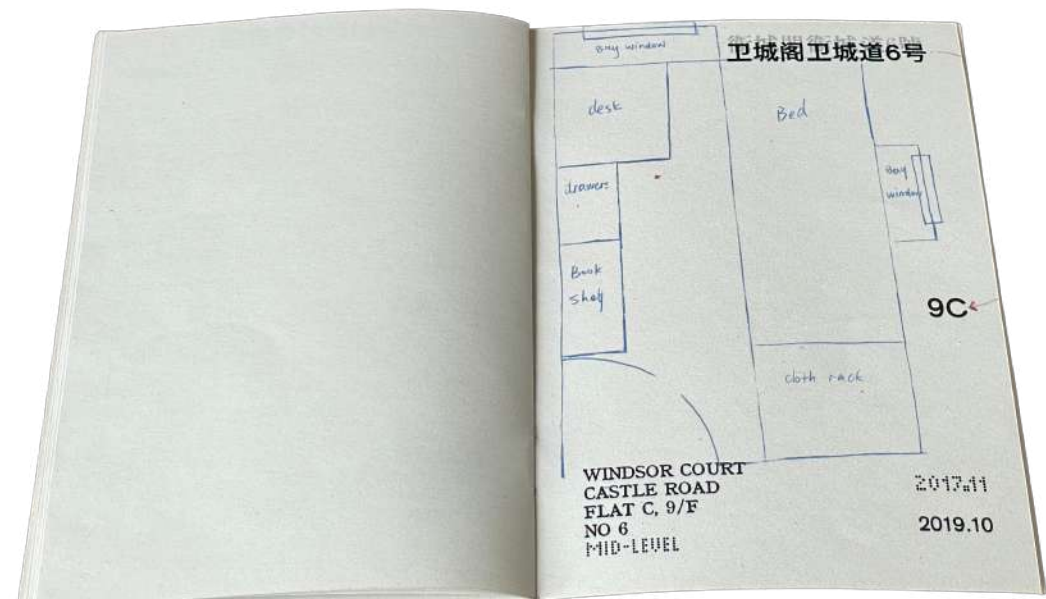 Bay window
卫城阁卫城道6号
desk
Bed
Bay
window
drawers
Book
shelf
9C
cloth rack
WINDSOR COURT
CASTLE ROAD
FLAT C, 9/F
NO 6
MID-LEVEL
2017.11
2019.10